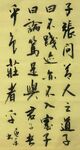 子張問善人之道子
曰不踐迹亦不入於室子
曰論篤是與君子者
乎色莊者乎